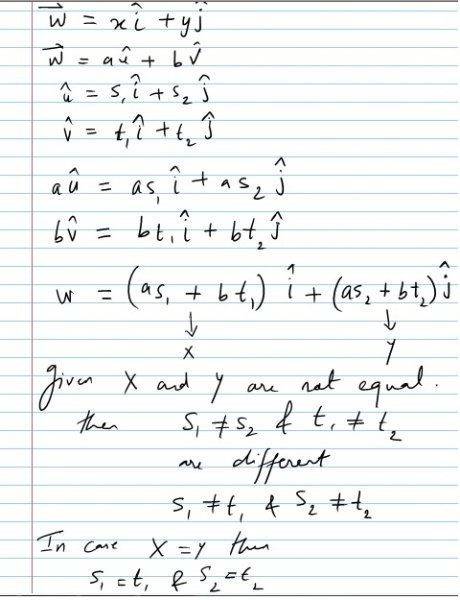 w⃗ = xî + yĵ
w⃗ = aû + bv̂
û = s₁î + s₂ĵ
v̂ = t₁î + t₂ĵ
aû = as₁î + as₂ĵ
bv̂ = bt₁î + bt₂ĵ
w = (as₁ + bt₁) î + (as₂ + bt₂) ĵ
↓ ↓
x y
Given X and Y are not equal.
then s₁ ≠ s₂ & t₁ ≠ t₂
are different
s₁ ≠ t₁ & s₂ ≠ t₂
In case X = Y then
s₁ = t₁ & s₂ = t₂